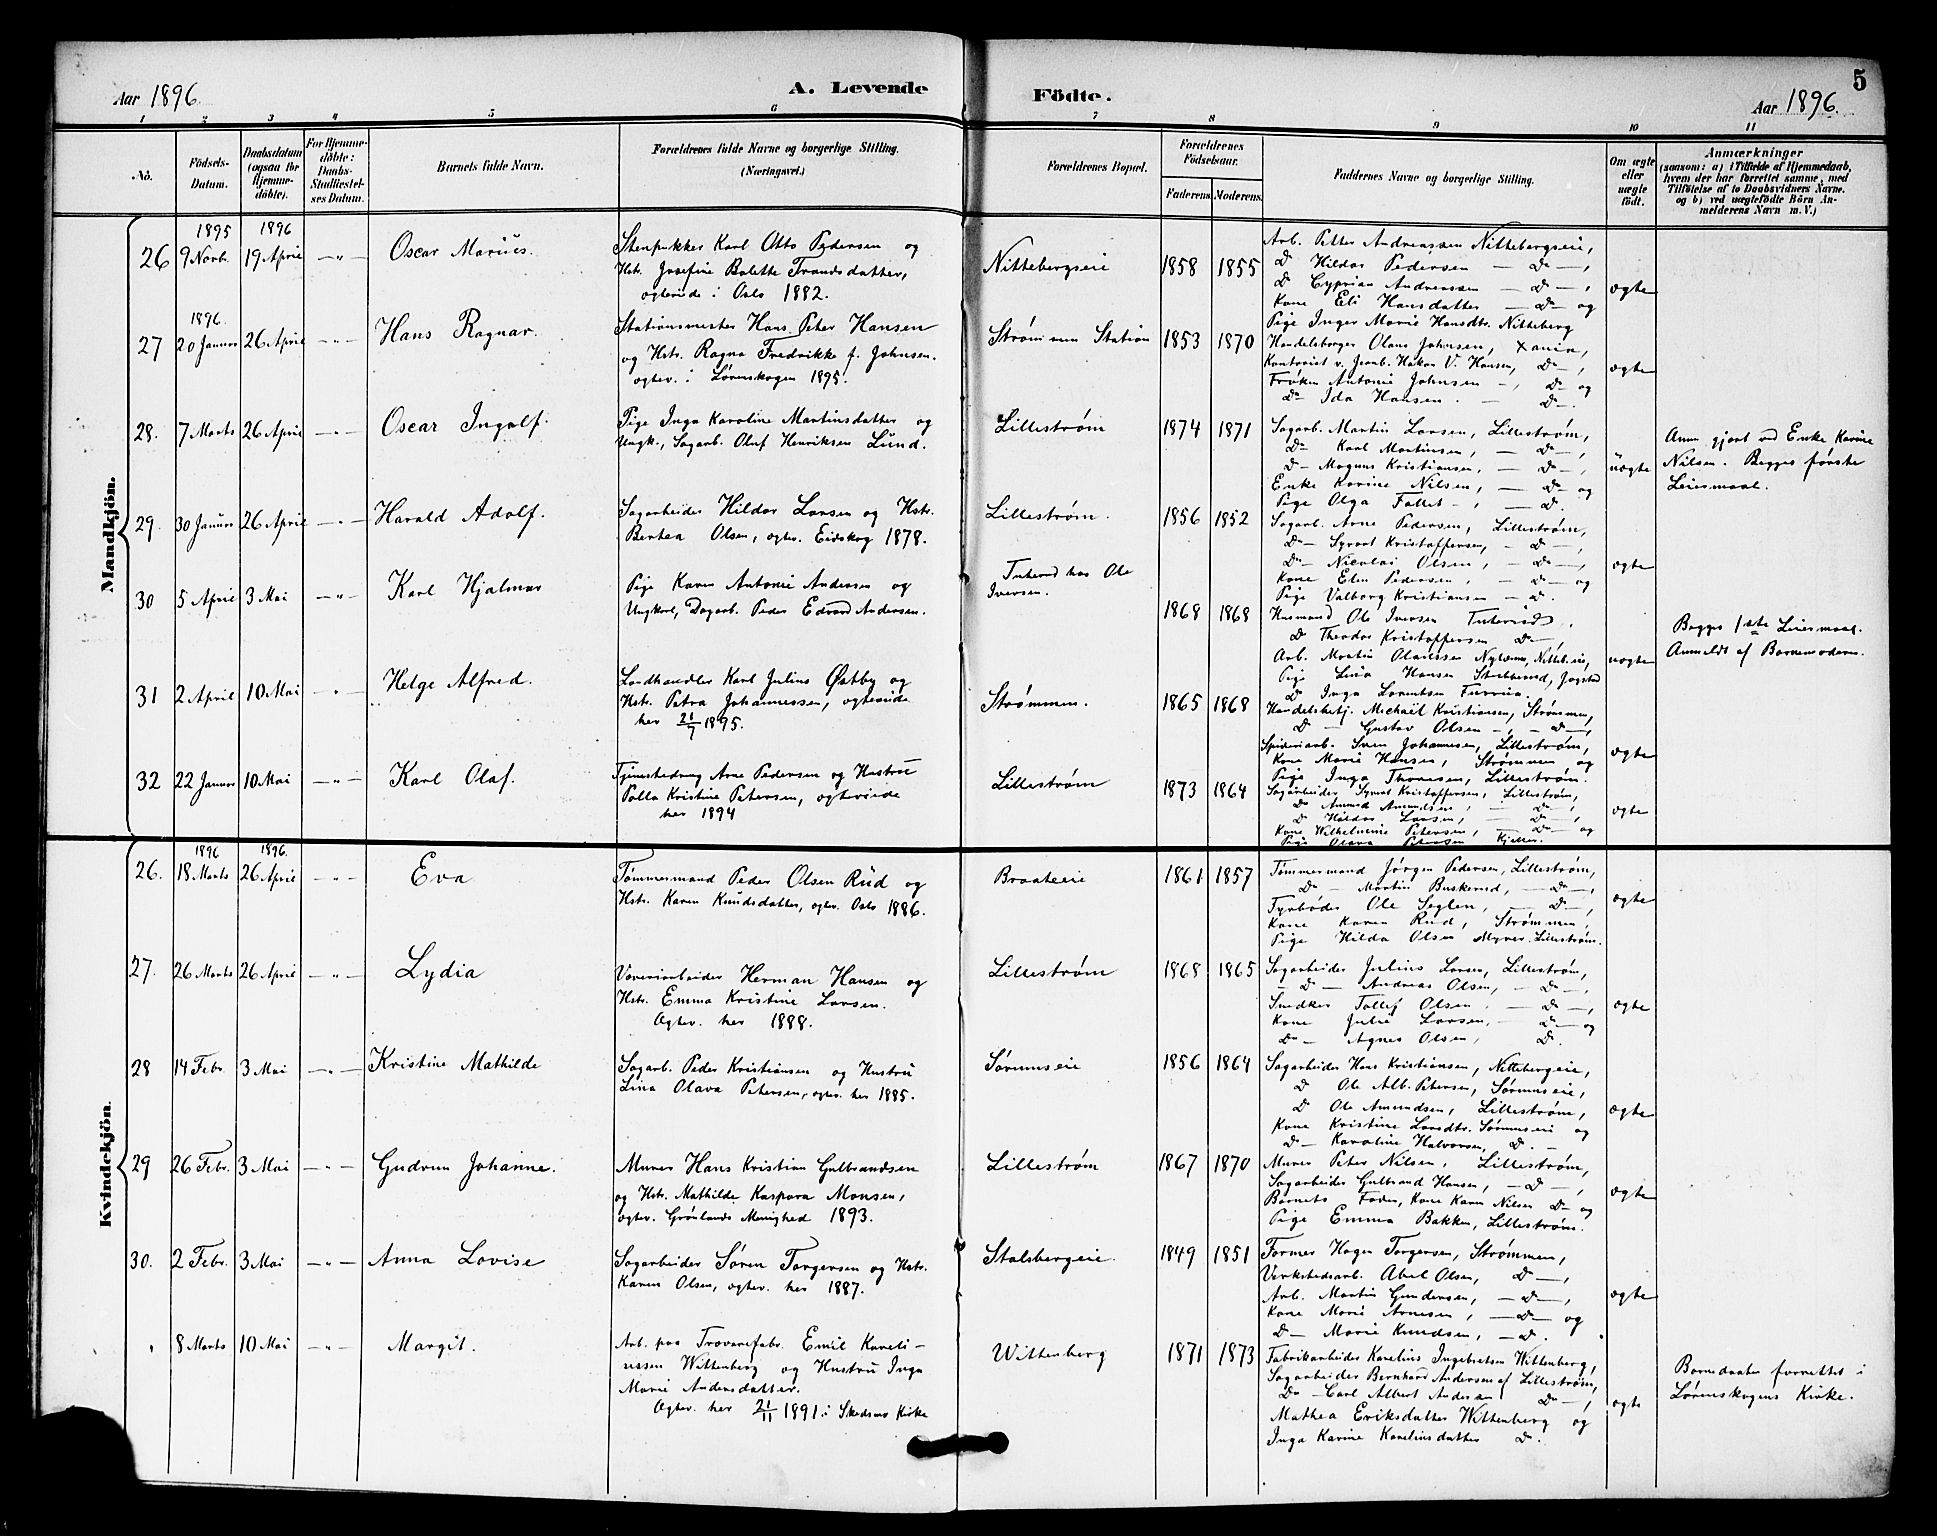 Aar 1896.
A. Levende Födte.
5
Aar 1896.
1 2 3 4 5 6 7 8 9 10 11
No.
Födsels-Datum.
Daabsdatum (ogsaa for Hjemmedöbte).
For Hjemmedöbte: Daabs-Stadfæstelses Datum.
Barnets fulde Navn.
Forældrenes fulde Navne og borgerlige Stilling.
(Næringsvei.)
Forældrenes Bopæl.
Forældrenes Födselsaar.
Faderens. Moderens.
Faddernes Navne og borgerlige Stilling.
Om ægte eller uægte födt.
Anmærkninger
(saasom: a) i Tilfælde af Hjemmedaab, hvem der har forrettet samme, med Tilföielse af to Daabsvidners Navne, og b) ved uægtefödte Börn Anmelderens Navn m. V.)
Mandkjön.
1895 1896
26 9 Novb. 19 April — " — Oscar Marius
Stenpukker Karl Otto Pedersen og
Hstr. Josefine Bolette Trondsdatter,
ægteviede i Oslo 1882.
Nittebergseie 1858 1855
Arb. Petter Andreassen Nittebergseie,
D Hildas Pedersen — Do —,
D Cyprian Andreassen — Do —,
Kone Eli Hansdatter — Do — og
Pige Inger Marie Hansdtr. Nitteberg
ægte
1896.
27 20 Januar 26 April — " — Hans Ragnar.
Stationsmester Hans Peter Hansen
og Hstr. Ragna Fredrikke f. Johnsen.
ægtev. i Lørenskogen 1895.
Strømmen Station 1853 1870
Handelsborger Olaus Johnsen, Xania,
Kontorist v. Jernb. Håkon V. Hansen, Do —,
Frøken Antonie Johnsen —, Do — og
Do — Ida Hansen. — Do —.
ægte
28. 7 Marts 26 April — " — Oscar Ingolf.
Pige Inga Karoline Martinsdatter og
Ungk., Sagarb. Oluf Henriksen Lund.
Lillestrøm 1874 1871
Sagarb. Martin Larsen, Lillestrøm,
Do — Karl Martinsen, — Do —,
Do — Magnus Kristiansen, — Do —,
Enke Karine Nilsen, — Do — og
Pige Olga Follet —, — Do.
uægte
Anm. gjort ved Enke Karine
Nilsen. Begges første
Leiermaal.
29. 30 Januar 26 April — " — Harald Adolf.
Sagarbeider Hildor Larsen og Hstr.
Berthea Olsen, ægtev. Eidskog 1878.
Lillestrøm. 1856 1852
Sagarb. Arne Pedersen, Lillestrøm,
Do — Syvert Kristoffersen, — Do —,
Do — Nicolai Olsen, — Do —,
Kone Elen Pedersen, — Do — og
Pige Valborg Kristiansen — Do.
ægte
30 5 April 3 Mai — " — Karl Hjalmar
Pige Karen Antonie Andersen og
Ungkarl, Dagarb. Peder Edvard Andersen.
Tuterud hos Ole
Iversen.
1868 1868
Husmand Ole Iversen Tuterud,
D Theodor Kristoffersen Do —,
Arb. Martin Olaussen Nylænne, Nittebeie,
Pige Lina Hansen
D Inga Lorentsen
uægte
Begges 1ste Leiermaal.
Anmeldt af Barnemoderen.
31 2 April 10 Mai — " — Helge Alfred.
Landhandler Karl Julius Østby og
Hstr. Petra Johannessen, ægteviede
her 21/7 1895.
Strømmen. 1865 1868
Handelsbetj. Michael Kristiansen, Strømmen,
D — Gustav Olsen —, — Do —,
Spideriarb. Sven Johannesen, Lillestrøm,
Kone Marie Hansen, Strømmen og
Pige Inga Thoresen, Lillestrøm.
ægte
32 22 Januar 10 Mai — " — Karl Olaf.
Tjenestedreng Arne Pedersen og Hustru
Polla Kristine Petersen, ægteviede
her 1894
Lillestrøm 1873 1864
Sagarbeider Syvert Kristoffersen, Lillestrøm,
Do Amund Amundsen, — Do —,
D Hildor Larsen, — Do —,
Kone Wilhelmine Petersen, — Do — og
Pige Olava Petersen Kjeller.
ægte
Kvindekjön.
1896 1896.
26. 18 Marts 26 April — " — Eva
Tømmermand Peder Olsen Rud og
Hstr. Karen Knudsdatter, ægtev. Oslo 1886.
Braateeie 1861 1857
Tømmermand Jörgen Pedersen, Lillestrøm,
Do — Martin Buskerud, — Do —,
Fyrbøder Ole Seglen, — Do —,
Kone Karen Rud, Strømmen,
Pige Hilda Olsen Myrer. Lillestrøm.
ægte
27. 26 Marts 26 April — " — Lydia
Væveriarbeider Herman Hansen og
Hstr. Emma Kristine Larsen.
Ægtev. her 1888.
Lillestrøm 1868 1865
Sagarbeider Julius Larsen, Lillestrøm,
— D — Andreas Olsen, — Do —,
Snedker Tollef Olsen, — Do —,
Kone Julie Larsen, — Do — og
Do — Agnes Olsen, Do.
ægte
28 14 Febr. 3 Mai — " — Kristine Mathilde
Sagarb. Peder Kristiansen og Hustru
Lina Olava Petersen, ægtev. her 1885.
Sørumseie 1856 1864
Sagarbeider Hans Kristiansen, Nittebergeie,
D Ole Alb. Petersen, Sørumseie,
D Ole Amundsen, Lillestrøm,
Kone Kristine Larsdtr. Sørumseie og
D — Karoline Halvorsen, D. —
ægte
29 26 Febr. 3 Mai — " — Gudrun Johanne.
Murer Hans Kristian Gulbrandsen
og Hstr. Mathilde Kaspara Monsen,
ægtev. Grønlands Menighed 1893.
Lillestrøm 1867 1870
Murer Peter Nilsen, Lillestrøm,
Sagarbeider Gulbrand Hansen, — D —,
Barnets Fader, Kone Karen Nilsen Do — og
Pige Emma Bakken, Lillestrøm.
ægte
30. 2 Febr. 3 Mai — " — Anna Lovise
Sagarbeider Søren Torgersen og Hstr.
Karen Olsen, ægtev. her 1887.
Stalsbergeie. 1849 1851
Former Hagen Torgersen, Strømmen,
Verkstedsarb. Abel Olsen, D —,
Arb. Martin Gundersen, — D —,
Kone Marie Arnesen, — D — og
D — Marie Knudsen, — D.
ægte
" 8 Marts 10 Mai — " — Margit.
Arb. paa Traavarefabr. Emil Kareli-
ussen Wittenberg og Hustru Inga
Marie Andersdatter.
Ægtev. her 21/11 1891 i Skedsmo Kirke
Wittenberg 1871 1873
Fabrikarbeider Karelius Ingebretsen Wittenberg,
Sagarbeider Bernhard Andersen af Lillestrøm,
Do — Carl Albert Andersen Do —,
Mathea Eriksdatter Wittenberg og
Inga Karine Kareliusdatter Do.
ægte
Barnedaaben forrettet i
Lørenskogens Kirke.